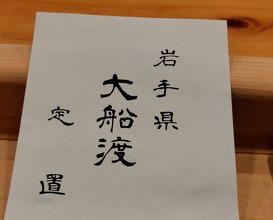 岩手県
大船渡
定置